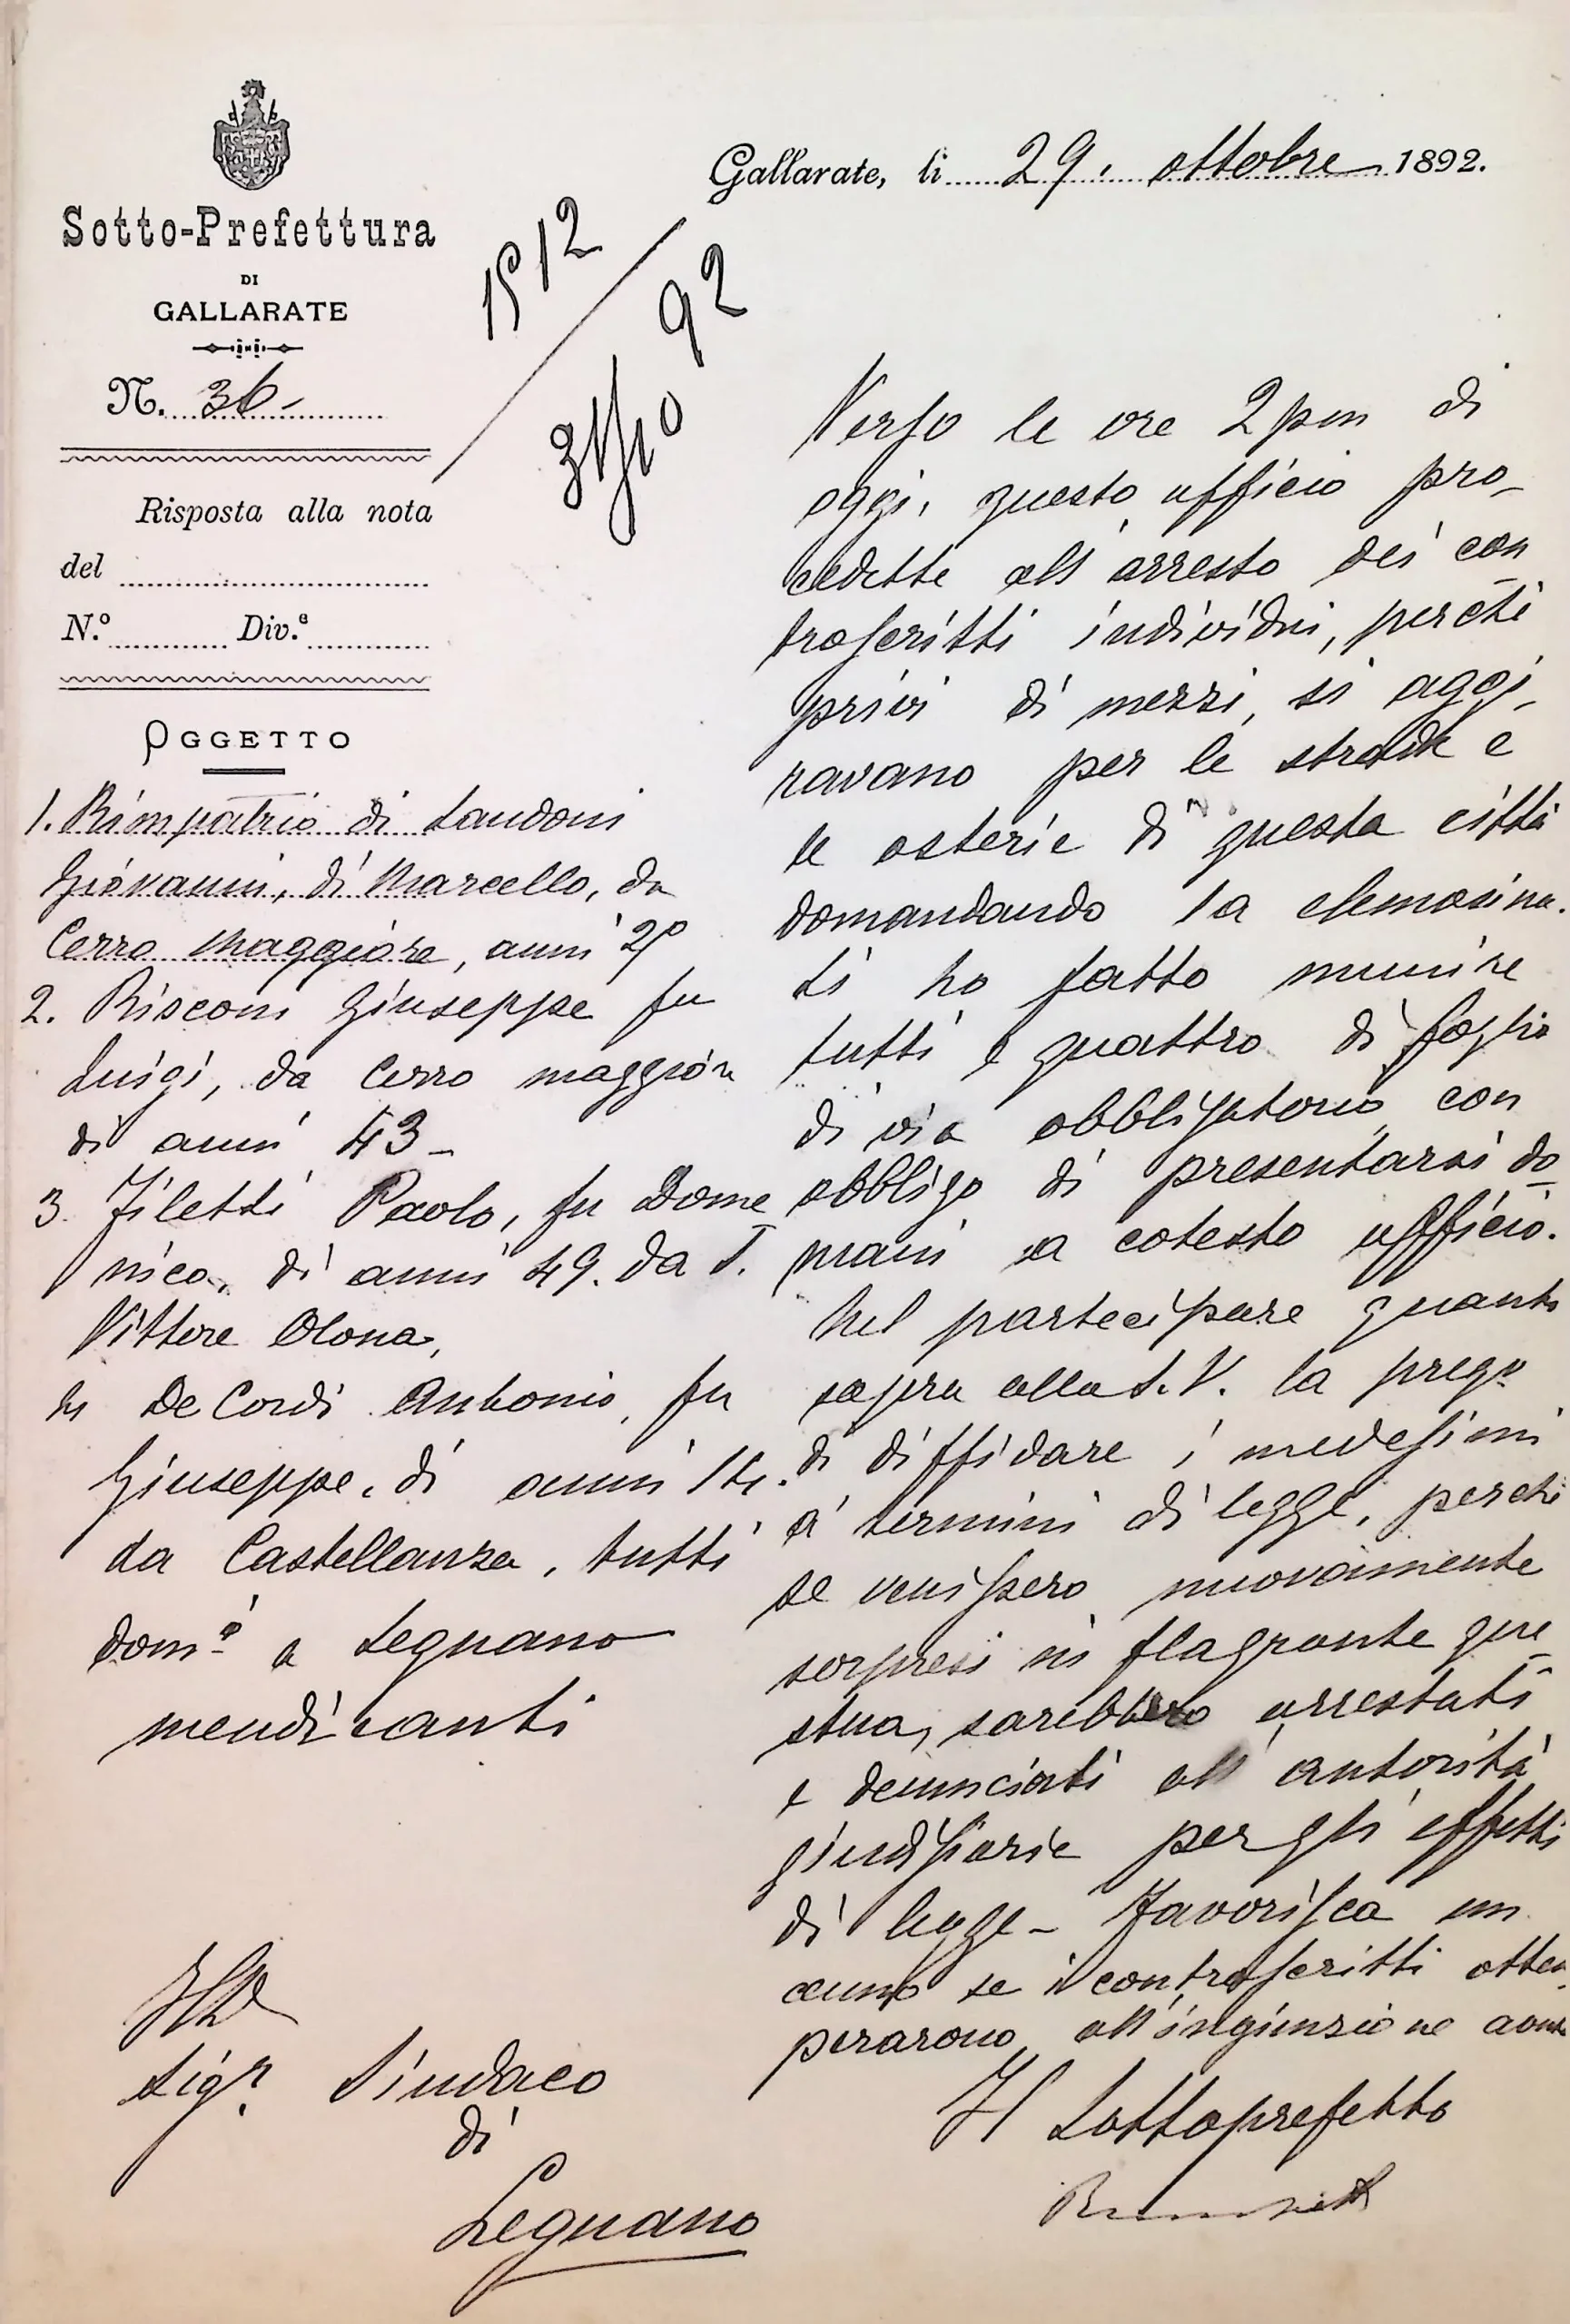 Sotto-Prefettura
DI
GALLARATE
N. 36-
Risposta alla nota
del
N.º Div.ª
OGGETTO
1. Rimpatrio di Landoni
Giovanni, di Marcello, da
Cerro Maggiore, anni
2. Risconi Giuseppe fu
Luigi, da Cerro maggiore
di anni 43-
3. Filetti Paolo, fu Dome
nico, di anni 49. da S.
Vittore Olona,
4 De Cordi Antonio, fu
Giuseppe, di anni 14.
da Castellanza, tutti
dom.i a Legnano
mendicanti
Sigr. Sindaco
di
Legnano
1512
31/10 92
Gallarate, li 29. ottobre 1892.
Verso le ore 2 pm di
oggi, questo ufficio pro-
cedette all'arresto dei con
troscritti individui, perchè
privi di mezzi, si aggi-
ravano per le strade e
le osterie di questa città
domandando la elemosina.
Li ho fatto munire
tutti e quattro di foglio
di via obbligatorio, con
obbligo di presentarsi do-
mani a cotesto ufficio.
Nel partecipare quanto
sopra alla S. V. la prego
di diffidare i medesimi
a' termini di legge, perchè
se venissero nuovamente
sorpresi in flagrante que-
stua, sarebbero arrestati
e denunciati all'autorità
giudiziarie per gli effetti
di legge- Favorisca un
cenno se i controscritti ottem-
perarono all'ingiunzione avuta
Il Sottoprefetto